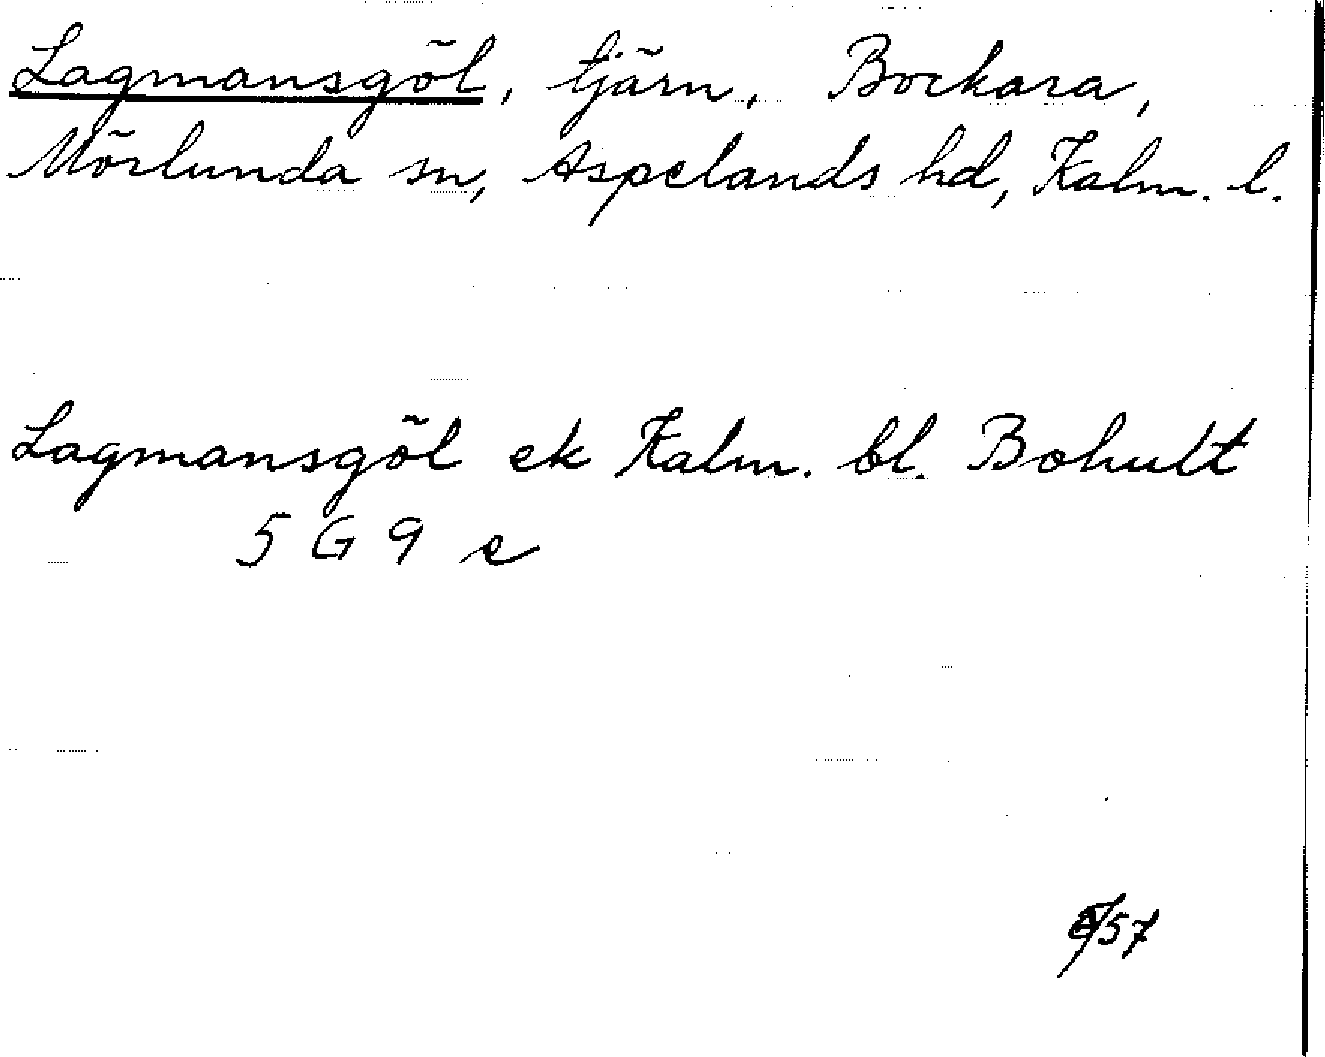 Lagmansgöl, tjärn, Bockara,
Mörlunda sn, Aspelands hd, Kalm. l.
Lagmansgöl ek Kalm. bl. Bohult
5 G 9 e